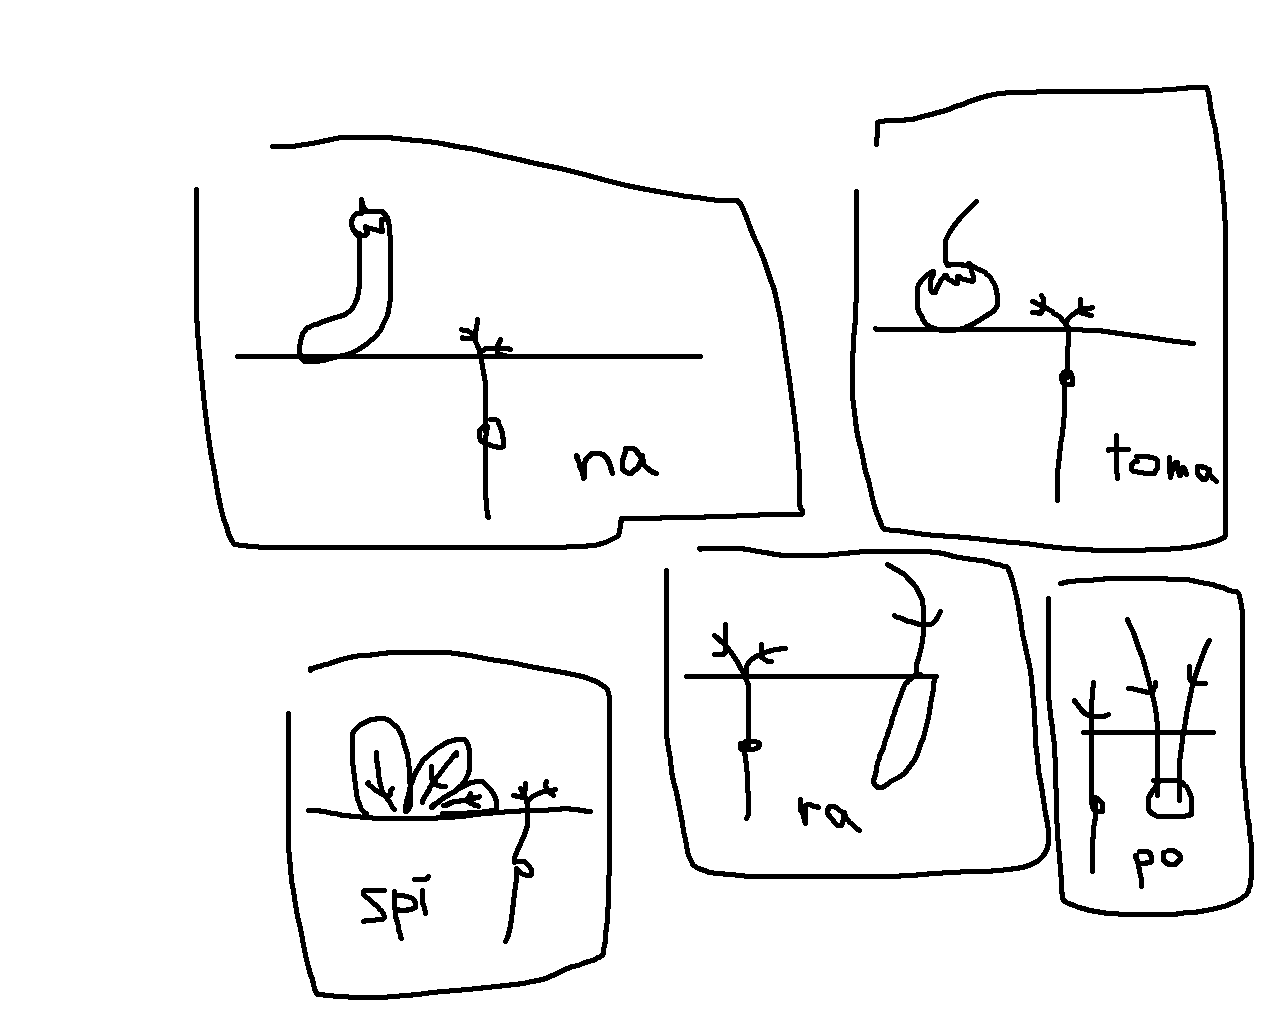 na
toma
spi
ra
po